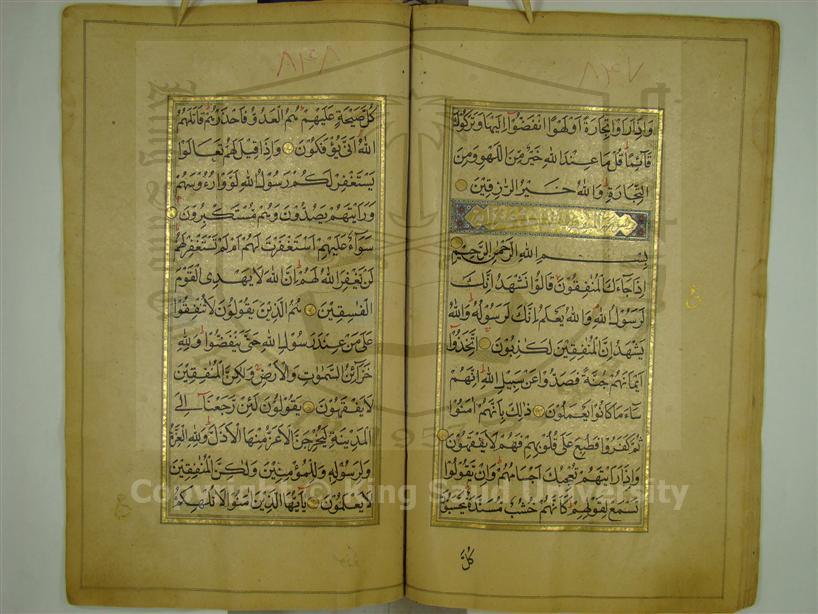 ٨١٤٧
وَإِذَا رَأَوْا تِجَارَةً أَوْ لَهْوًا انْفَضُّوا إِلَيْهَا وَتَرَكُوكَ
قَائِمًا قُلْ مَا عِنْدَ اللهِ خَيْرٌ مِنَ اللَّهْوِ وَمِنَ
التِّجَارَةِ وَاللهُ خَيْرُ الرَّازِقِينَ
بِسْمِ اللهِ الرَّحْمٰنِ الرَّحِيمِ
إِذَا جَاءَكَ الْمُنٰفِقُونَ قَالُوا نَشْهَدُ إِنَّكَ
لَرَسُولُ اللهِ وَاللهُ يَعْلَمُ إِنَّكَ لَرَسُولُهُ وَاللهُ
يَشْهَدُ إِنَّ الْمُنٰفِقِينَ لَكٰذِبُونَ اتَّخَذُوا
أَيْمَانَهُمْ جُنَّةً فَصَدُّوا عَنْ سَبِيلِ اللهِ إِنَّهُمْ
سَاءَ مَا كَانُوا يَعْمَلُونَ ذٰلِكَ بِأَنَّهُمْ آمَنُوا
ثُمَّ كَفَرُوا فَطُبِعَ عَلَى قُلُوبِهِمْ فَهُمْ لَا يَفْقَهُونَ
وَإِذَا رَأَيْتَهُمْ تُعْجِبُكَ أَجْسَامُهُمْ وَإِنْ يَقُولُوا
تَسْمَعْ لِقَوْلِهِمْ كَأَنَّهُمْ خُشُبٌ مُسَنَّدَةٌ يَحْسَبُونَ
كُلَّ
٨١٤٨
كُلَّ صَيْحَةٍ عَلَيْهِمْ هُمُ الْعَدُوُّ فَاحْذَرْهُمْ قَاتَلَهُمُ
اللهُ أَنَّى يُؤْفَكُونَ وَإِذَا قِيلَ لَهُمْ تَعَالَوْا
يَسْتَغْفِرْ لَكُمْ رَسُولُ اللهِ لَوَّوْا رُءُوسَهُمْ
وَرَأَيْتَهُمْ يَصُدُّونَ وَهُمْ مُسْتَكْبِرُونَ
سَوَاءٌ عَلَيْهِمْ أَسْتَغْفَرْتَ لَهُمْ أَمْ لَمْ تَسْتَغْفِرْ لَهُمْ
لَنْ يَغْفِرَ اللهُ لَهُمْ إِنَّ اللهَ لَا يَهْدِي الْقَوْمَ
الْفٰسِقِينَ هُمُ الَّذِينَ يَقُولُونَ لَا تُنْفِقُوا
عَلَى مَنْ عِنْدَ رَسُولِ اللهِ حَتَّى يَنْفَضُّوا وَلِلّٰهِ
خَزَائِنُ السَّمٰوٰتِ وَالْأَرْضِ وَلٰكِنَّ الْمُنٰفِقِينَ
لَا يَفْقَهُونَ يَقُولُونَ لَئِنْ رَجَعْنَا إِلَى
الْمَدِينَةِ لَيُخْرِجَنَّ الْأَعَزُّ مِنْهَا الْأَذَلَّ وَلِلّٰهِ الْعِزَّةُ
وَلِرَسُولِهِ وَلِلْمُؤْمِنِينَ وَلٰكِنَّ الْمُنٰفِقِينَ
لَا يَعْلَمُونَ يَا أَيُّهَا الَّذِينَ آمَنُوا لَا تُلْهِكُمْ
Copyright © King Saud University